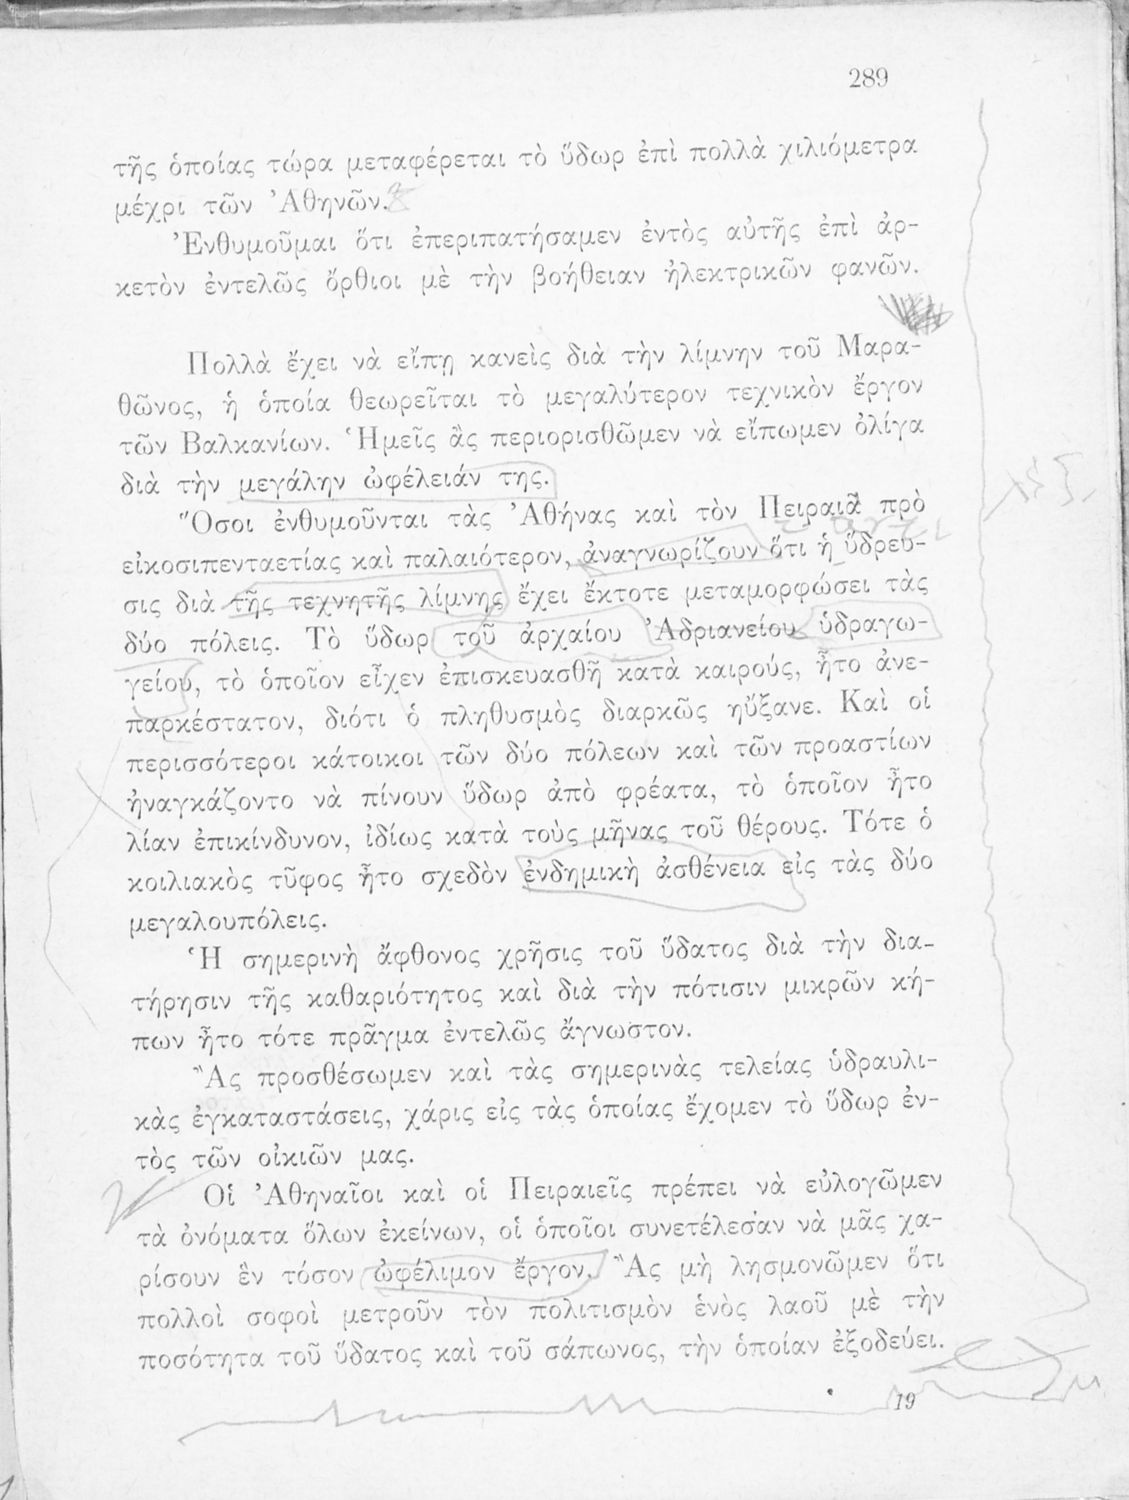 289
τῆς ὁποίας τώρα μεταφέρεται τὸ ὕδωρ ἐπὶ πολλὰ χιλιόμετρα
μέχρι τῶν Ἀθηνῶν.
Ἐνθυμοῦμαι ὅτι ἐπεριπατήσαμεν ἐντὸς αὐτῆς ἐπὶ ἀρ-
κετὸν ἐντελῶς ὄρθιοι μὲ τὴν βοήθειαν ἠλεκτρικῶν φανῶν.
Πολλὰ ἔχει νὰ εἴπῃ κανεὶς διὰ τὴν λίμνην τοῦ Μαρα-
θῶνος, ἡ ὁποία θεωρεῖται τὸ μεγαλύτερον τεχνικὸν ἔργον
τῶν Βαλκανίων. Ἡμεῖς ἂς περιορισθῶμεν νὰ εἴπωμεν ὀλίγα
διὰ τὴν μεγάλην ὠφέλειάν της.
Ὅσοι ἐνθυμοῦνται τὰς Ἀθήνας καὶ τὸν Πειραιᾶ πρὸ
εἰκοσιπενταετίας καὶ παλαιότερον, ἀναγνωρίζουν ὅτι ἡ ὕδρευ-
σις διὰ τῆς τεχνητῆς λίμνης ἔχει ἔκτοτε μεταμορφώσει τὰς
δύο πόλεις. Τὸ ὕδωρ τοῦ ἀρχαίου Ἀδριανείου ὑδραγω-
γείου, τὸ ὁποῖον εἶχεν ἐπισκευασθῆ κατὰ καιρούς, ἦτο ἀνε-
παρκέστατον, διότι ὁ πληθυσμὸς διαρκῶς ηὔξανε. Καὶ οἱ
περισσότεροι κάτοικοι τῶν δύο πόλεων καὶ τῶν προαστίων
ἠναγκάζοντο νὰ πίνουν ὕδωρ ἀπὸ φρέατα, τὸ ὁποῖον ἦτο
λίαν ἐπικίνδυνον, ἰδίως κατὰ τοὺς μῆνας τοῦ θέρους. Τότε ὁ
κοιλιακὸς τῦφος ἦτο σχεδὸν ἐνδημικὴ ἀσθένεια εἰς τὰς δύο
μεγαλουπόλεις.
Ἡ σημερινὴ ἄφθονος χρῆσις τοῦ ὕδατος διὰ τὴν δια-
τήρησιν τῆς καθαριότητος καὶ διὰ τὴν πότισιν μικρῶν κή-
πων ἦτο τότε πρᾶγμα ἐντελῶς ἄγνωστον.
Ἂς προσθέσωμεν καὶ τὰς σημερινὰς τελείας ὑδραυλι-
κὰς ἐγκαταστάσεις, χάρις εἰς τὰς ὁποίας ἔχομεν τὸ ὕδωρ ἐν-
τὸς τῶν οἰκιῶν μας.
Οἱ Ἀθηναῖοι καὶ οἱ Πειραιεῖς πρέπει νὰ εὐλογῶμεν
τὰ ὀνόματα ὅλων ἐκείνων, οἱ ὁποῖοι συνετέλεσαν νὰ μᾶς χα-
ρίσουν ἓν τόσον ὠφέλιμον ἔργον. Ἂς μὴ λησμονῶμεν ὅτι
πολλοὶ σοφοὶ μετροῦν τὸν πολιτισμὸν ἑνὸς λαοῦ μὲ τὴν
ποσότητα τοῦ ὕδατος καὶ τοῦ σάπωνος, τὴν ὁποίαν ἐξοδεύει.
19